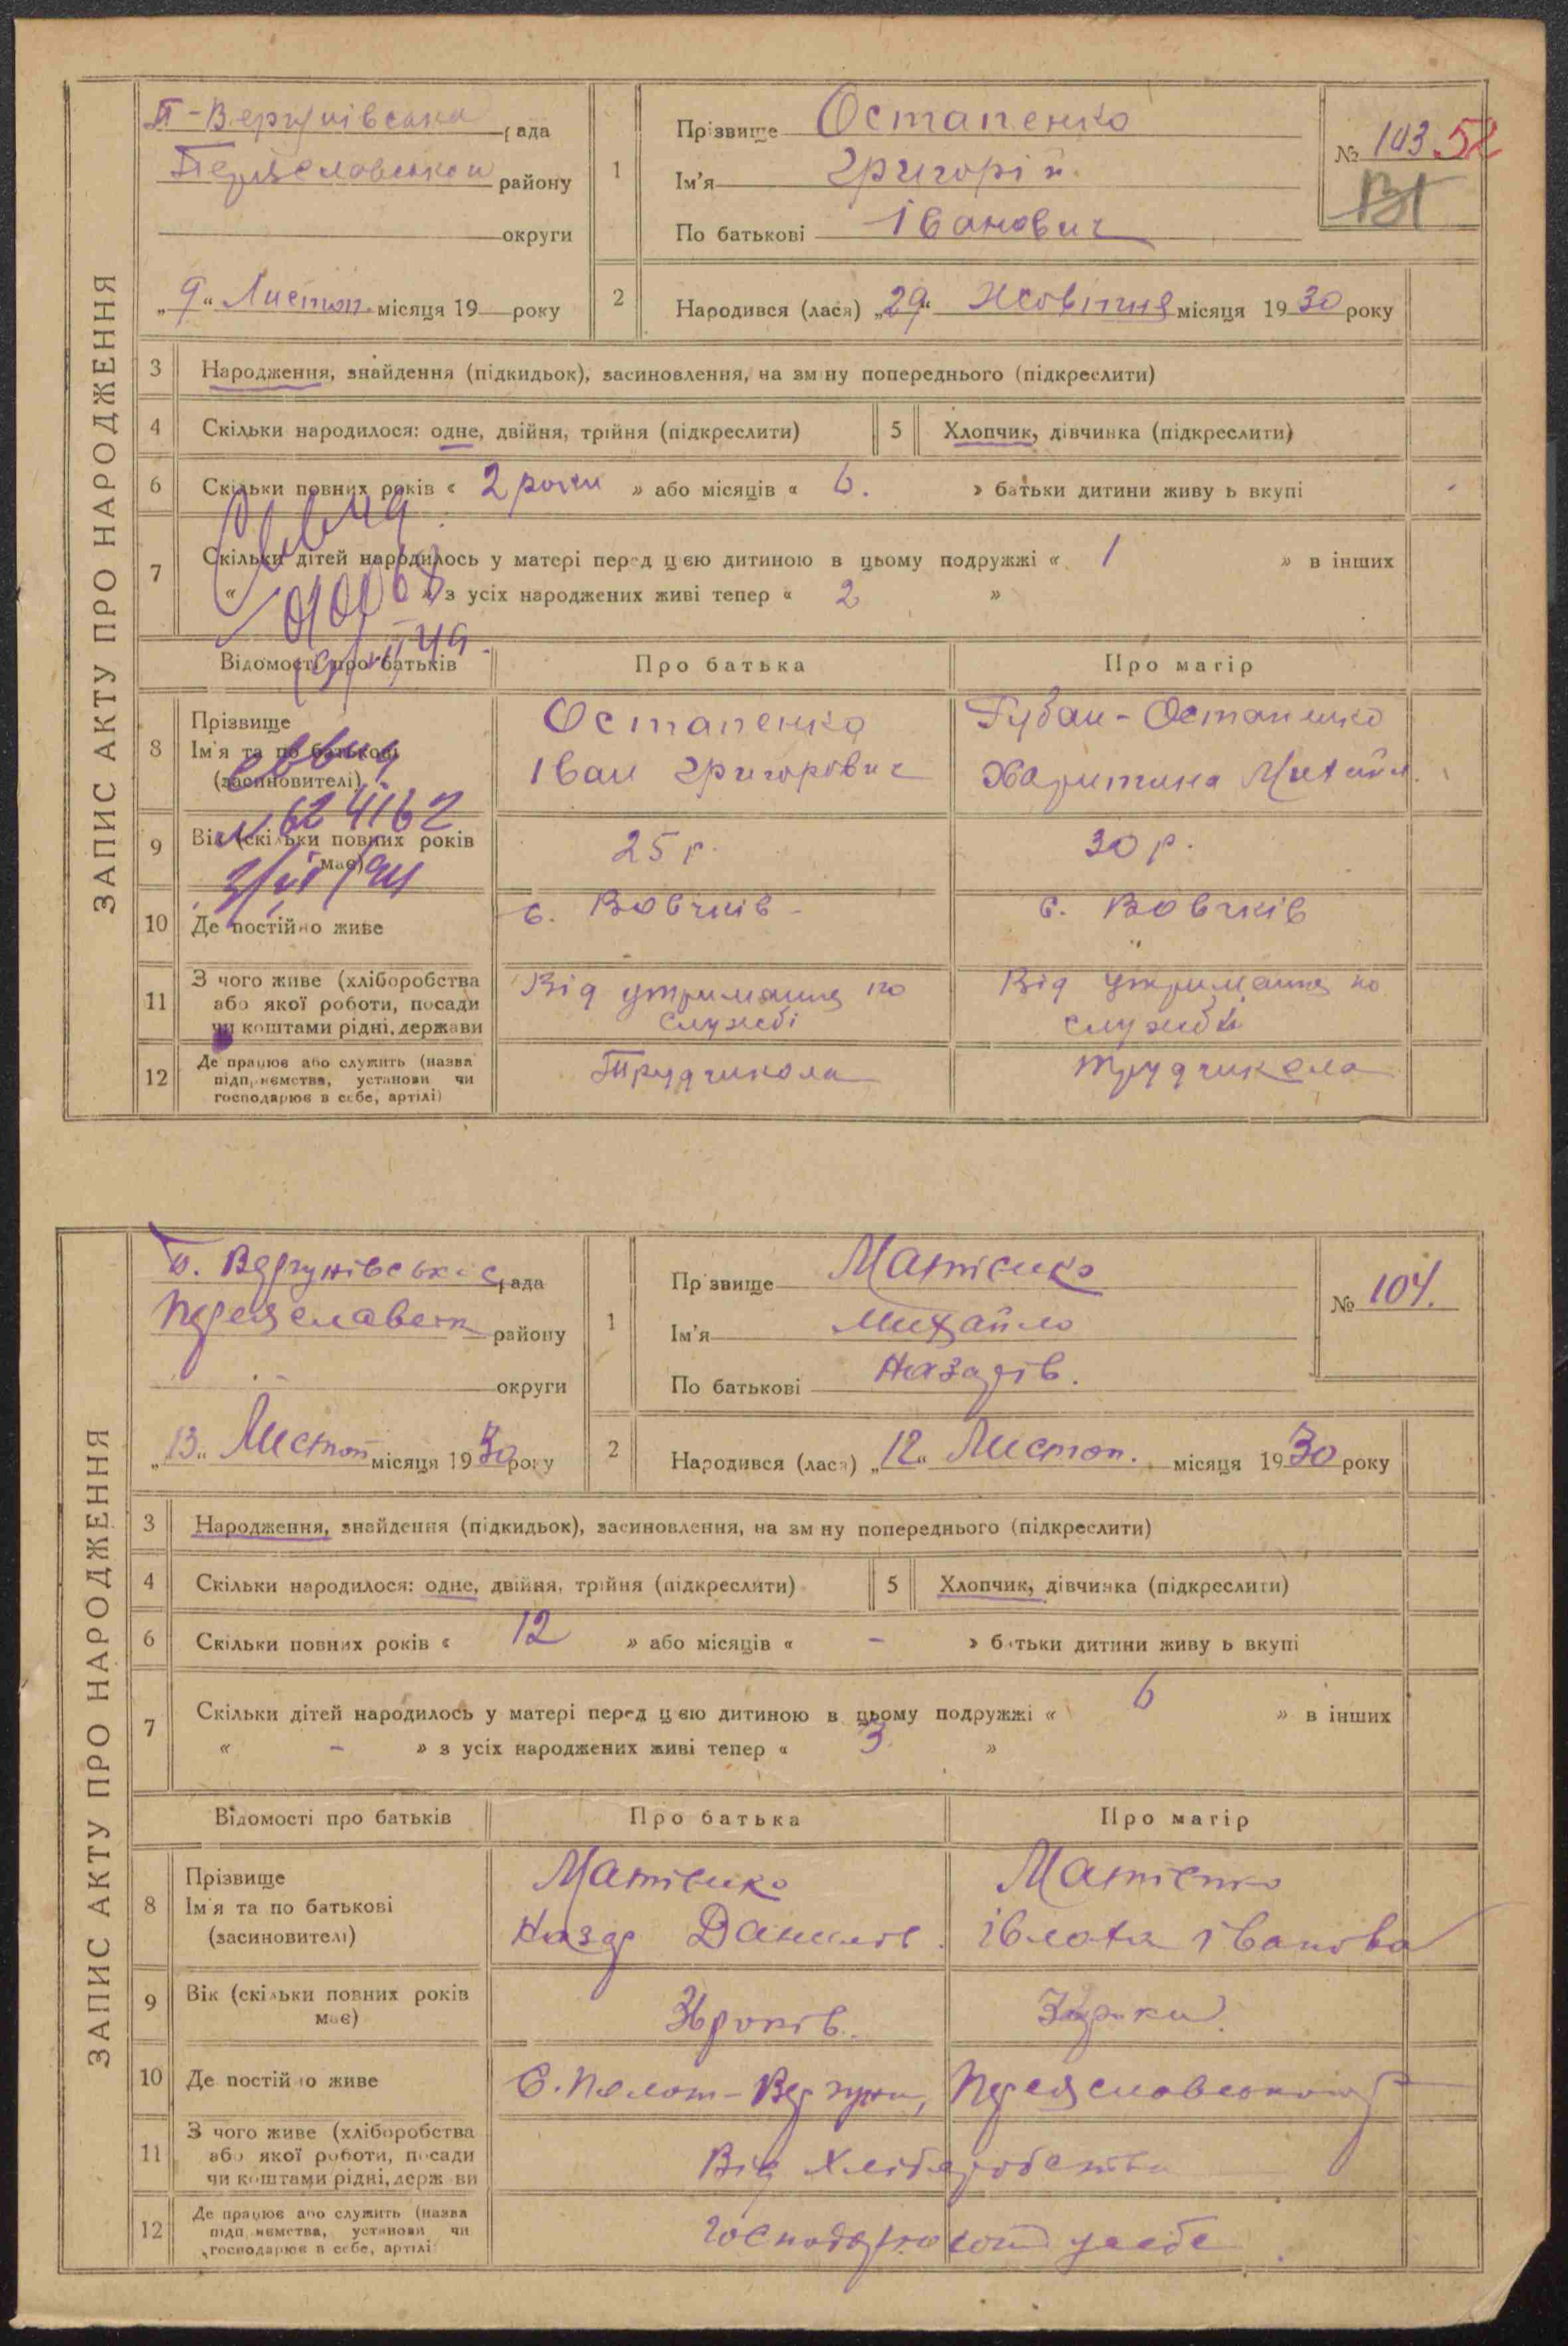 ЗАПИС АКТУ ПРО НАРОДЖЕННЯ
П-Вергунівська рада
Переяславської району
округи
„9“ Листоп. місяця 19 року
1 Прізвище Остапенко
Ім'я Григорій
По батькові Іванович
№ 103. 52
ВІ
2 Народився (лася) „29“ Жовтня місяця 1930 року
3 Народження, знайдення (підкидьок), засиновлення, на зміну попереднього (підкреслити)
4 Скільки народилося: одне, двійня, трійня (підкреслити) 5 Хлопчик, дівчинка (підкреслити)
6 Скільки повних років « 2 роки » або місяців « 6. » батьки дитини живуть вкупі
7 Скільки дітей народилось у матері перед цією дитиною в цьому подружжі « 1 » в інших
« » з усіх народжених живі тепер « 2 »
Відомості про батьків Про батька Про матір
8 Прізвище Остапенко Губан-Остапенко
Ім'я та по батькові Іван Григорович Харитина Михайл.
(засиновителі)
№ 624162
9 Вік (скільки повних років має) 25 р. 30 р.
10 Де постійно живе с. Вовчків с. Вовчків
11 З чого живе (хліборобства або якої роботи, посади чи коштами рідні, держави Від утримання по службі Від утримання по службі
12 Де працює або служить (назва підприємства, установи чи господарює в себе, артілі) Трудчикола Трудчикола
ЗАПИС АКТУ ПРО НАРОДЖЕННЯ
П. Вергунівська рада
Переяславськ району
округи
„13“ Листоп місяця 1930 року
1 Прізвище Матієнко
Ім'я Михайло
По батькові Назарів.
№ 104.
2 Народився (лася) „12“ Листоп. місяця 1930 року
3 Народження, знайдення (підкидьок), засиновлення, на зміну попереднього (підкреслити)
4 Скільки народилося: одне, двійня, трійня (підкреслити) 5 Хлопчик, дівчинка (підкреслити)
6 Скільки повних років « 12 » або місяців « - » батьки дитини живуть вкупі
7 Скільки дітей народилось у матері перед цією дитиною в цьому подружжі « 6 » в інших
« - » з усіх народжених живі тепер « 3 »
Відомості про батьків Про батька Про матір
8 Прізвище Матієнко Матієнко
Ім'я та по батькові Назар Данилов. Івлота Іванова
(засиновителі)
9 Вік (скільки повних років має) 36 років.
10 Де постійно живе С. Полот-Вергуни, Переяславського
11 З чого живе (хліборобства або якої роботи, посади чи коштами рідні, держави Від Хліборобства
12 Де працює або служить (назва підприємства, установи чи господарює в себе, артілі Господарюють у себе